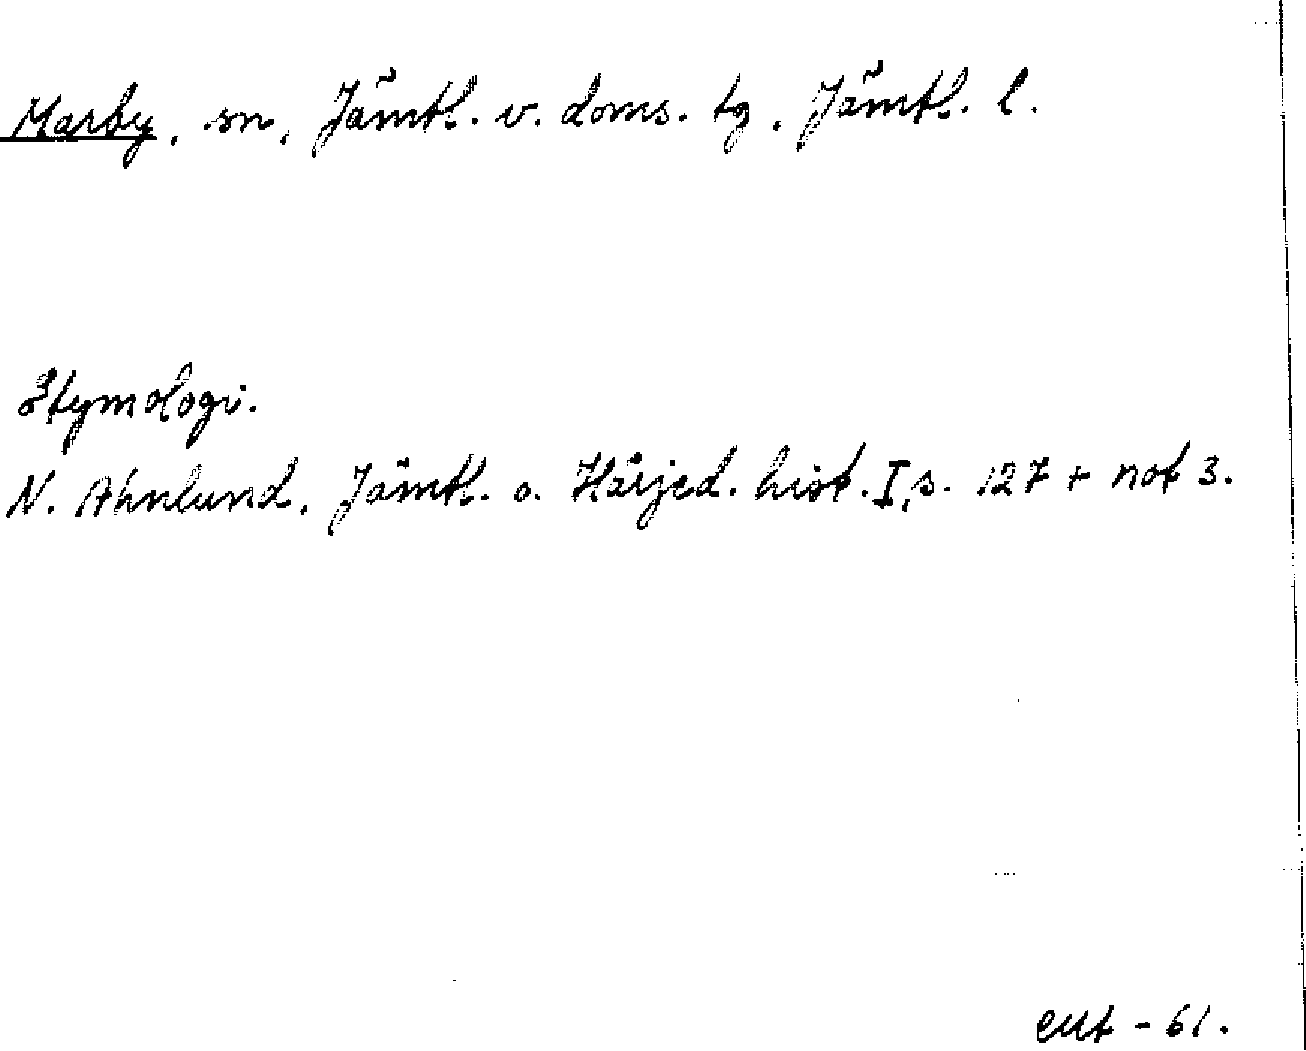 Marby, sn, Jämtl. v. doms. tg, Jämtl. l.
Etymologi.
N. Ahnlund, Jämtl. o. Härjed. hist. I, s. 127 + not 3.
- 61.